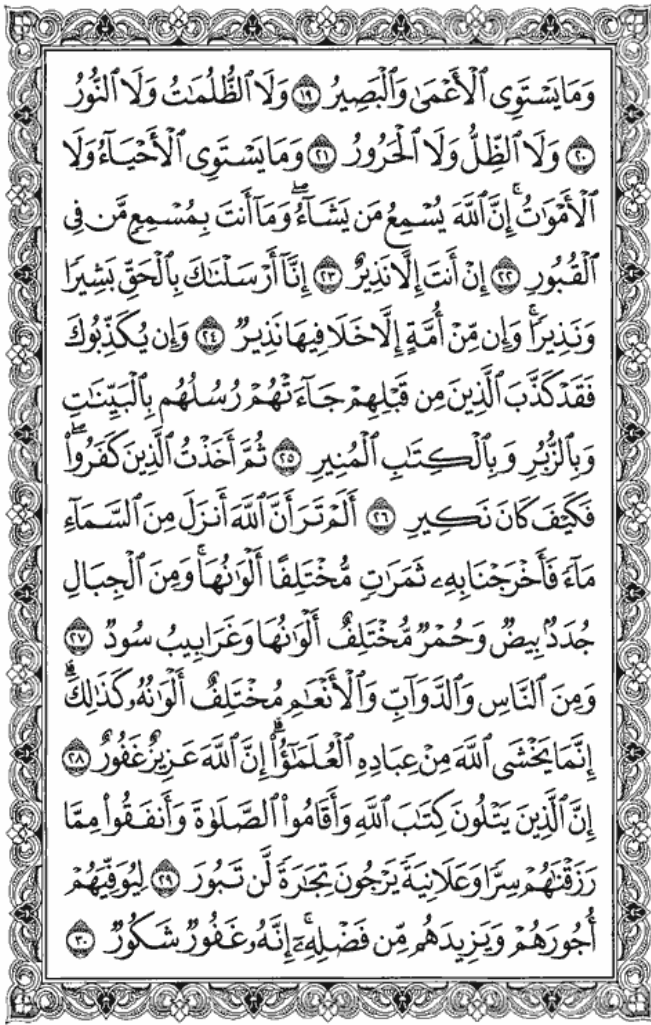 وَمَا يَسْتَوِى ٱلْأَعْمَىٰ وَٱلْبَصِيرُ ١٩ وَلَا ٱلظُّلُمَـٰتُ وَلَا ٱلنُّورُ
٢٠ وَلَا ٱلظِّلُّ وَلَا ٱلْحَرُورُ ٢١ وَمَا يَسْتَوِى ٱلْأَحْيَآءُ وَلَا
ٱلْأَمْوَٰتُ ۚ إِنَّ ٱللَّهَ يُسْمِعُ مَن يَشَآءُ ۖ وَمَآ أَنتَ بِمُسْمِعٍ مَّن فِى
ٱلْقُبُورِ ٢٢ إِنْ أَنتَ إِلَّا نَذِيرٌ ٢٣ إِنَّآ أَرْسَلْنَـٰكَ بِٱلْحَقِّ بَشِيرًا
وَنَذِيرًا ۚ وَإِن مِّنْ أُمَّةٍ إِلَّا خَلَا فِيهَا نَذِيرٌ ٢٤ وَإِن يُكَذِّبُوكَ
فَقَدْ كَذَّبَ ٱلَّذِينَ مِن قَبْلِهِمْ جَآءَتْهُمْ رُسُلُهُم بِٱلْبَيِّنَـٰتِ
وَبِٱلزُّبُرِ وَبِٱلْكِتَـٰبِ ٱلْمُنِيرِ ٢٥ ثُمَّ أَخَذْتُ ٱلَّذِينَ كَفَرُوا۟ ۖ
فَكَيْفَ كَانَ نَكِيرِ ٢٦ أَلَمْ تَرَ أَنَّ ٱللَّهَ أَنزَلَ مِنَ ٱلسَّمَآءِ
مَآءً فَأَخْرَجْنَا بِهِۦ ثَمَرَٰتٍ مُّخْتَلِفًا أَلْوَٰنُهَا ۚ وَمِنَ ٱلْجِبَالِ
جُدَدٌۢ بِيضٌ وَحُمْرٌ مُّخْتَلِفٌ أَلْوَٰنُهَا وَغَرَابِيبُ سُودٌ ٢٧
وَمِنَ ٱلنَّاسِ وَٱلدَّوَآبِّ وَٱلْأَنْعَـٰمِ مُخْتَلِفٌ أَلْوَٰنُهُۥ كَذَٰلِكَ ۗ
إِنَّمَا يَخْشَى ٱللَّهَ مِنْ عِبَادِهِ ٱلْعُلَمَـٰٓؤُا۟ ۗ إِنَّ ٱللَّهَ عَزِيزٌ غَفُورٌ ٢٨
إِنَّ ٱلَّذِينَ يَتْلُونَ كِتَـٰبَ ٱللَّهِ وَأَقَامُوا۟ ٱلصَّلَوٰةَ وَأَنفَقُوا۟ مِمَّا
رَزَقْنَـٰهُمْ سِرًّا وَعَلَانِيَةً يَرْجُونَ تِجَـٰرَةً لَّن تَبُورَ ٢٩ لِيُوَفِّيَهُمْ
أُجُورَهُمْ وَيَزِيدَهُم مِّن فَضْلِهِۦٓ ۚ إِنَّهُۥ غَفُورٌ شَكُورٌ ٣٠